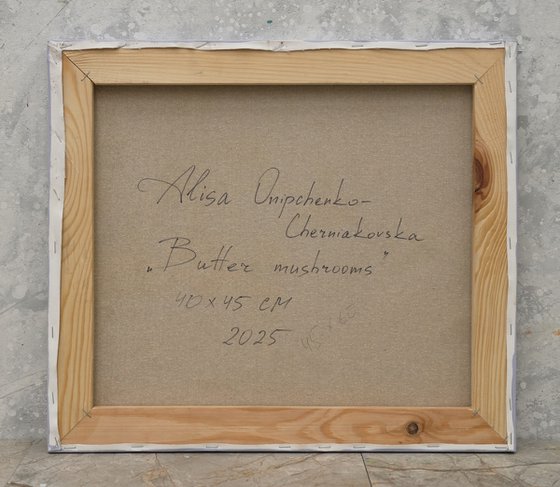 Alisa Onipchenko-
Cherniakovska
„Butter mushrooms"
40 x 45 см
2025